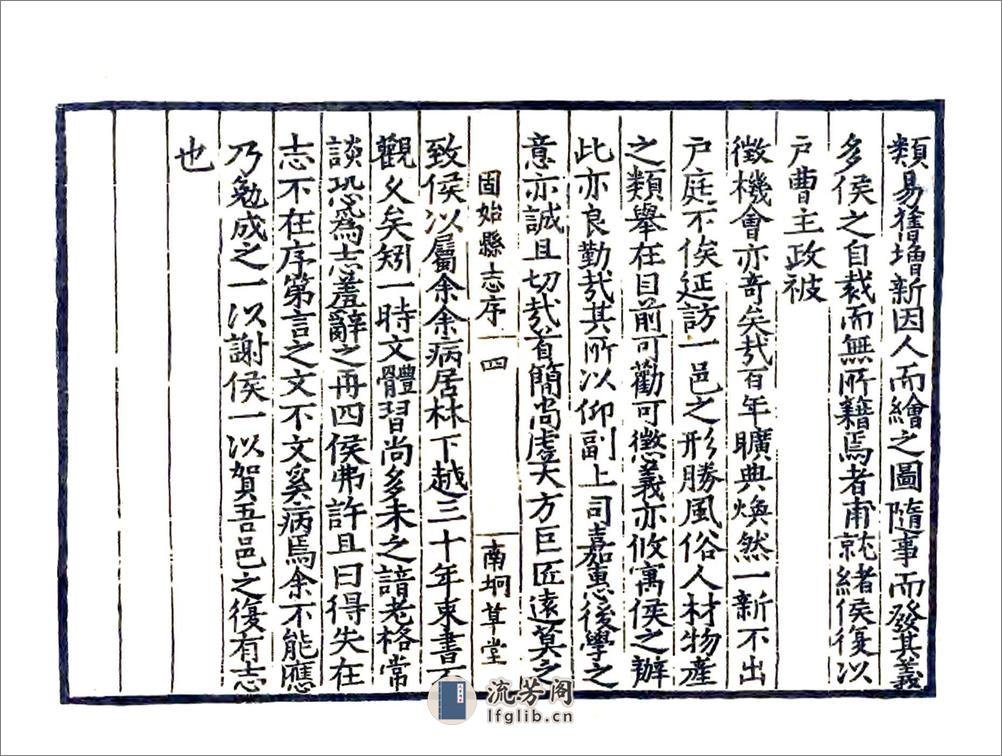 類易舊增新因人而繪之圖隨事而發其義
多侯之自裁而無所籍焉者甫就緒侯復以
戶曹主政被
徵機會亦奇矣哉百年曠典煥然一新不出
戶庭不俟延訪一邑之形勝風俗人材物產
之類舉在目前可勸可懲義亦攸寓侯之辦
此亦良勤哉其所以仰副上司嘉惠後學之
意亦誠且切哉首簡尚虛大方巨匠遠莫之
固始縣志序 四 南坰草堂
致侯以屬余余病居林下越三十年束書不
觀久矣矧一時文體習尚多未之諳老格常
談恐爲志羞辭之再四侯弗許且曰得失在
志不在序第言之文不文奚病焉余不能應
乃勉成之一以謝侯一以賀吾邑之復有志
也
流芳阁
lfglib.cn